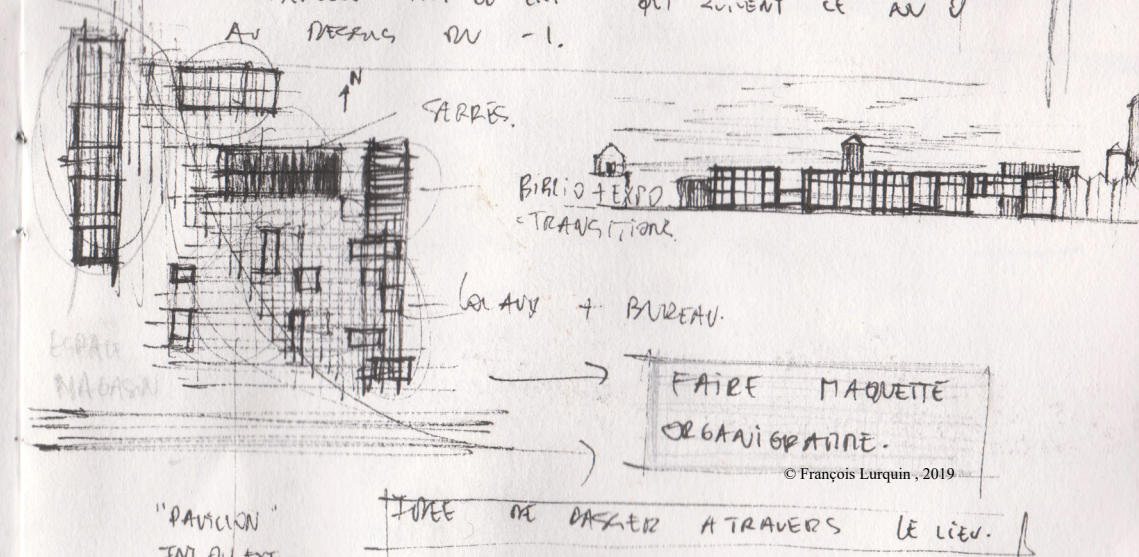 QUI SUIVENT CE
AU DESSUS DU -1.
N
SERRES.
BIBLIO + EXPO
= TRANSITION.
LOCAUX + BUREAU.
ESPACE
MAGASIN
FAIRE MAQUETTE
ORGANIGRAMME.
© François Lurquin , 2019
"PAVILLON"
IDEE DE PASSER A TRAVERS LE LIEU.